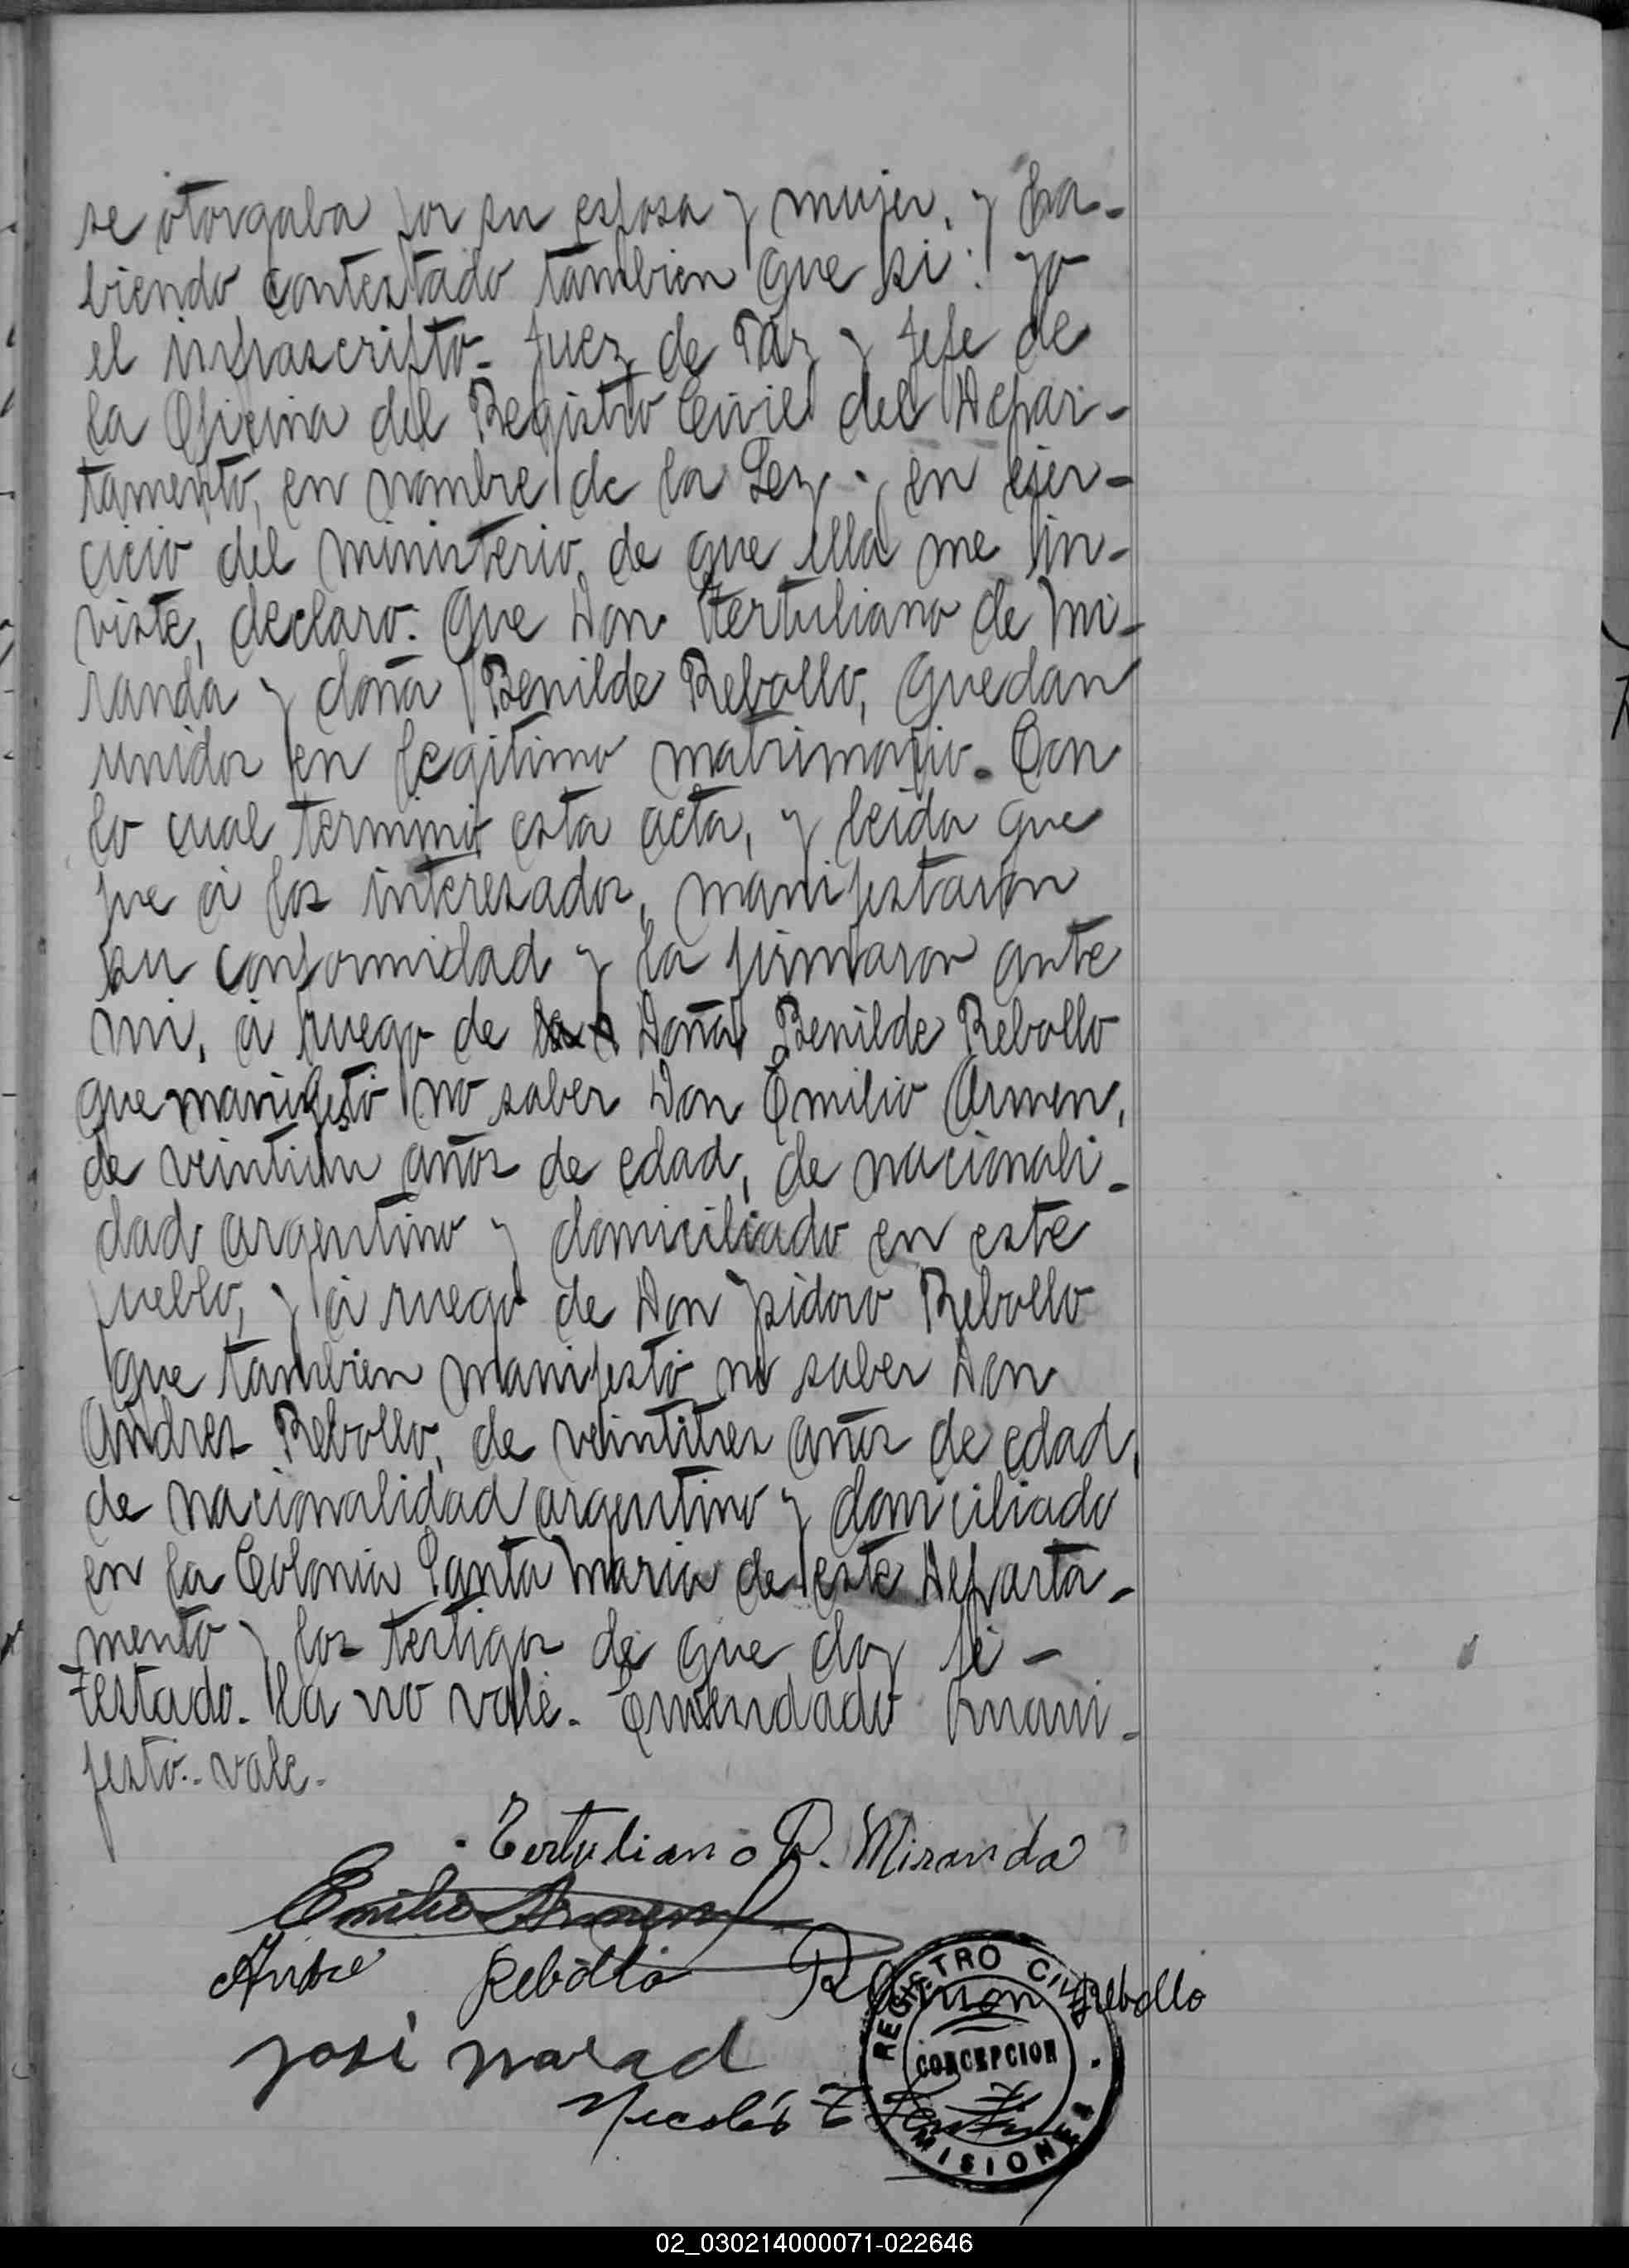 se otorgaba por su esposa y mujer, y ha-
biendo contestado tambien que si: yo
el infrascripto- Juez de Paz y Jefe de
la Oficina del Registro Civil del Depar-
tamento, en nombre de la Ley y en ejer-
cicio del ministerio de que ella me in-
viste, declaro: Que Don Tertuliano de Mi-
randa y doña Benilde Rebollo, quedan
unidos en legitimo matrimonio. Con
lo cual terminó esta acta, y leida que
fue á los interesados, manifestaron
su conformidad y la firmaron ante
mi, á ruego de la Doña Benilde Rebollo
que manifestó no saber Don Emilio Armen,
de veintiun años de edad, de nacionali-
dad argentino y domiciliado en este
pueblo, y á ruego de Don Ysidoro Rebollo
que tambien manifestó no saber Don
Andres Rebollo, de veintitres años de edad,
de nacionalidad argentino y domiciliado
en la Colonia Santa Maria de este Departa-
mento y los testigos de que doy fé-
testado. la no vale. Emendado mani-
festó.- vale-
Tertuliano D. Miranda
Emilio Armen
Andre Rebollo Ramon Rebollo
José
Nicolás
REGISTRO CIVIL
CONCEPCION
MISIONES
02_030214000071-022646